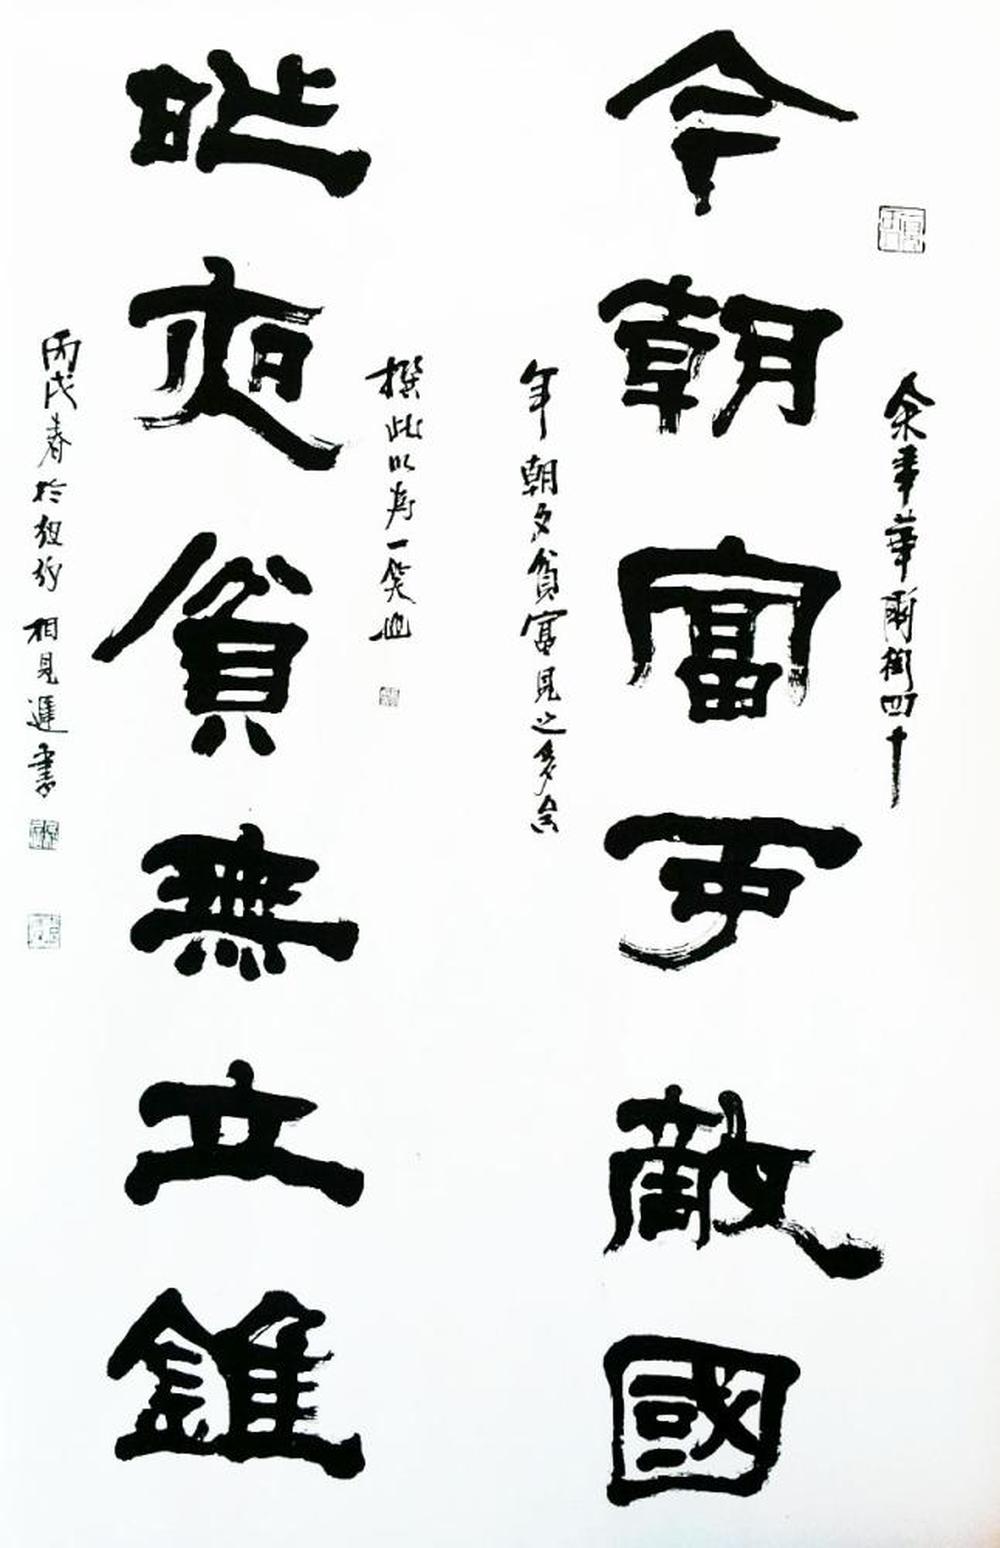 余事華爾街四十
今朝富可敵國
年朝夕貧富見之多矣
撰此以為一笑也
昨夜貧無立錐
丙戌春於紐約 相見遲書